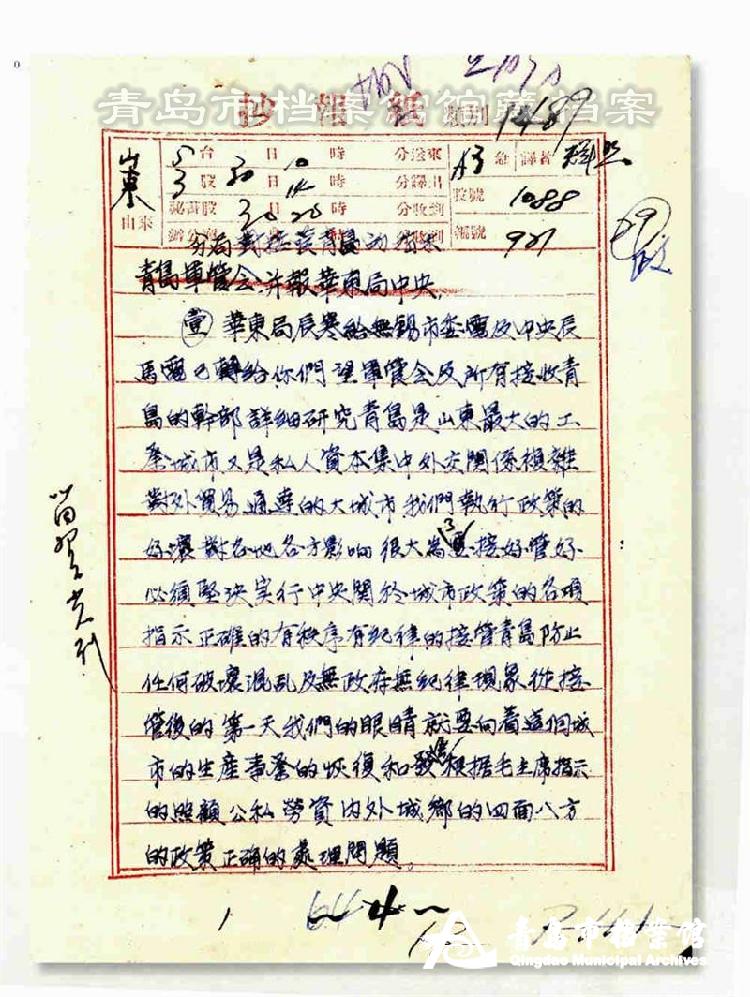 青岛市档案馆馆藏档案
抄報紙 類別 1489
山東 5 台 30 日 10 時 分送來 A3 急 譯者
3 股 30 日 14 時 分譯出 收號 1088
山東 秘書股 30 20 時 分收到 編號 927
分局對接管青島的指示
青島軍管會并報華東局中央
(壹)華東局辰寒給無錫市委電及中央辰
馬電已轉給你們望軍管會及所有接收青
島的幹部詳細研究青島是山東最大的工
業城市又是私人資本集中外交關係複雜
對外貿易通達的大城市我們執行政策的
好壞對各地各方影响很大為了要接好管好
必須堅決实行中央關於城市政策的各項
指示正確的有秩序有紀律的接管青島防止
任何破壞混乱及無政府無紀律現象從接
管後的第一天我們的眼睛就要向着這個城
市的生產事業的恢復和發展根据毛主席指示
的照顧公私勞資內外城鄉的四面八方
的政策正確的處理問題。
1
4
青島市档案馆
Qingdao Municipal Archives